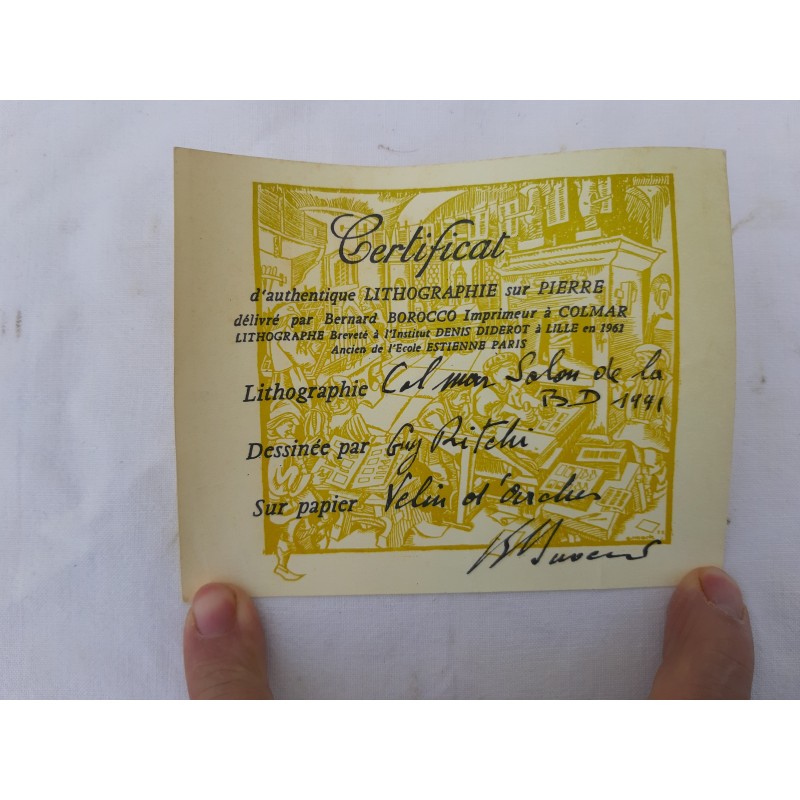 Certificat
d'authentique LITHOGRAPHIE sur PIERRE
délivré par Bernard BOROCCO Imprimeur à COLMAR
LITHOGRAPHE Breveté à l'Institut DENIS DIDEROT à LILLE en 1961
Ancien de l'Ecole ESTIENNE PARIS
Lithographie Colmar Salon de la
BD 1991
Dessinée par Guy Ritchi
Sur papier Velin d'Arches